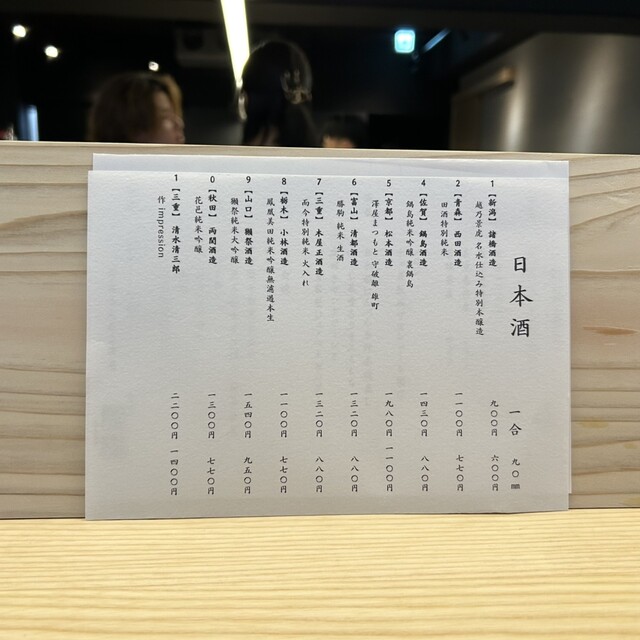 日本酒
一合 九〇㎜
1【新潟】諸橋酒造
越乃景虎 名水仕込み特別本醸造
九〇〇円 六〇〇円
2【青森】西田酒造
田酒特別純米
一一〇〇円 七七〇円
4【佐賀】鍋島酒造
鍋島純米吟醸 裏鍋島
一四三〇円 八八〇円
5【京都】松本酒造
澤屋まつもと 守破離 雄町
一九八〇円 一一〇〇円
6【富山】清都酒造
勝駒 純米 生酒
一三二〇円 八八〇円
7【三重】木屋正酒造
而今特別純米 火入れ
一三二〇円 八八〇円
8【栃木】小林酒造
鳳凰美田純米吟醸無濾過本生
一一〇〇円 七七〇円
9【山口】獺祭酒造
獺祭純米大吟醸
一五四〇円 九五〇円
0【秋田】両関酒造
花邑純米吟醸
一三〇〇円 七七〇円
1【三重】清水清三郎
作 impression
二二〇〇円 一四〇〇円